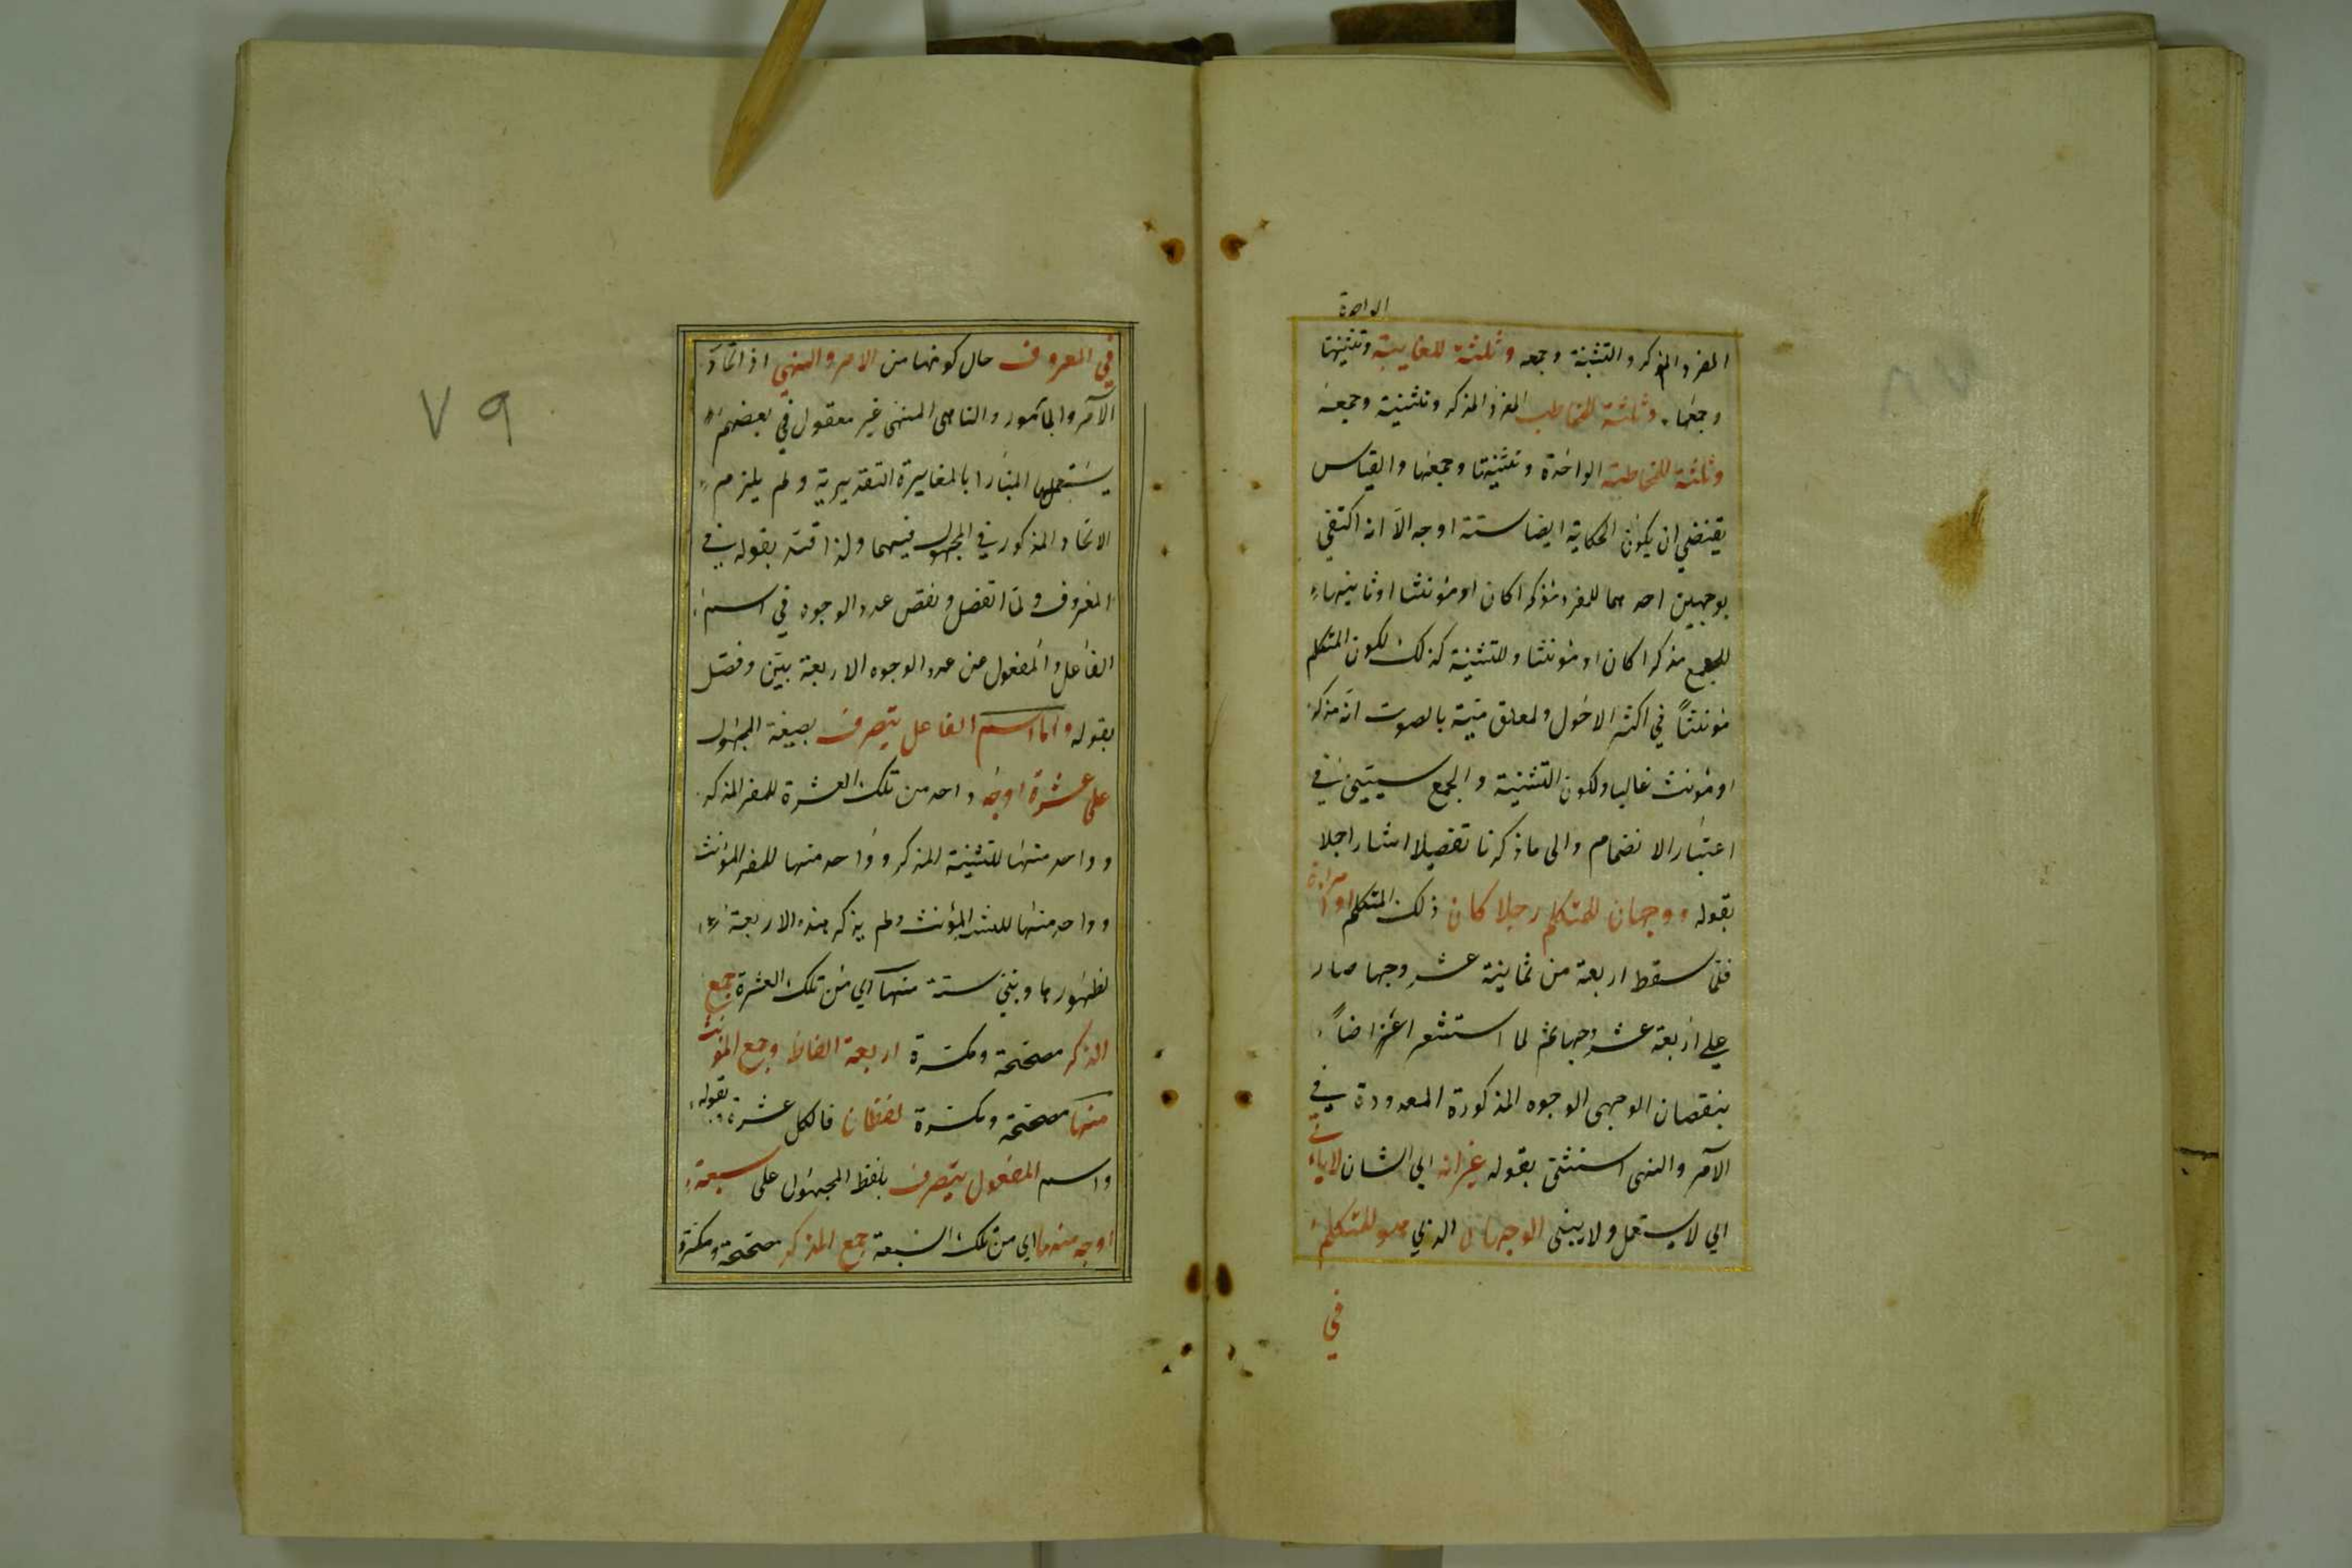 الواحدة
المفرد المذكر والتثنية وجمعه وثلثة للغايبة وتثنيتها
وجمعها، وثلثة للمخاطب المفرد المذكر وتثنيته وجمعه
وثلثة للمخاطبة الواحدة وتثنيتها وجمعها والقياس
يقتضي ان يكون الحكاية ايضا ستة اوجه الا انه اكتفي
بوجهين احدهما للمفرد مذكرا كان او مؤنثا وثانيهما
للجمع مذكرا كان او مؤنثا وللتثنية كذلك لكون المتكلم
مؤنثاً في اكثر الاحوال بالصوت انه مذكر
او مؤنث غالبا ولكون التثنية والجمع سيين في
اعتبار الانضمام والى ما ذكرنا تفصيلا اشار اجلا
بقوله ووجهان للمتكلم رجلا كان ذلك المتكلم او امراة
فلما سقط اربعة من ثمانية عشر وجها صار
على اربعة عشر وجها ثم لما استشعر اعتراضاً
بنقصان الوجهي الوجوه المذكورة المعدودة في
الآمر والنهى استثنى بقوله غير انه اي الشان لا ياتي
اي لا يستعمل ولا يبنى الوجهان الذي هو للمتكلم
في
٧٩
في المعروف حال كونها من الامر والنهي اذ اتحاد
الآمر والمأمور والناهى المنهى غير معقول في بعضهم
يستعملها اعتبارا بالمغايرة التقديرية ولم يلزم
الاتحاد المذكور في المجهول فيهما ولذا قيد بقوله في
المعروف ولما انفصل ونقص عدد الوجوه في اسم
الفاعل والمفعول من عدد الوجوه الاربعة بيّن وفصل
بقوله واما اسم الفاعل يتصرف بصيغة المجهول
على عشرة اوجه واحد من تلك العشرة للمفرد المذكر
وواحد منها للتثنية المذكر وواحد منها للمفرد المؤنث
وواحد منها للتثنية المؤنث ولم يذكر هذه الاربعة
لظهورها وبقي ستة منها اي من تلك العشرة جمع
المذكر مصححة ومكسرة اربعة الفاظ وجمع المؤنث
منها مصححة ومكسرة لفظان فالكل عشرة بقوله
واسم المفعول يتصرف بلفظ المجهول على سبعة
اوجه منها اي من تلك السبعة جمع المذكر مصححة ومكسرة